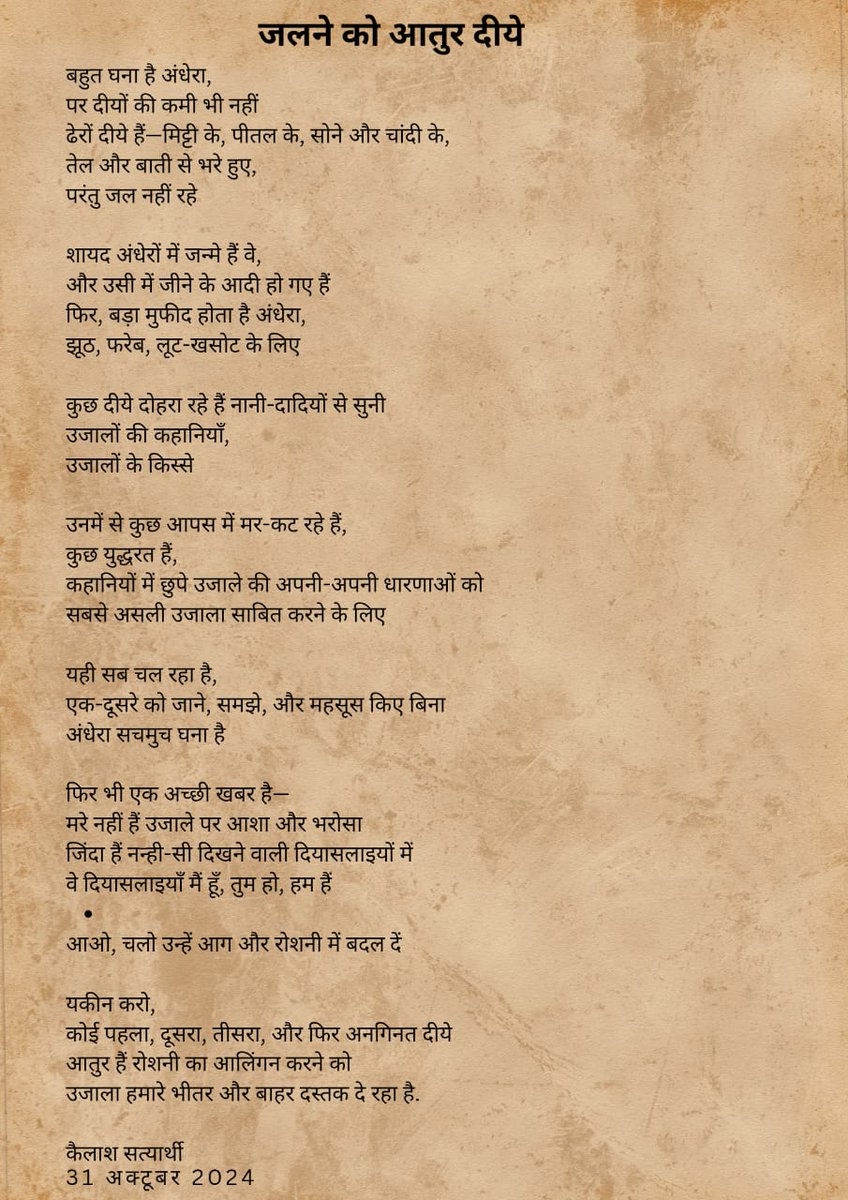 जलने को आतुर दीये
बहुत घना है अंधेरा,
पर दीयों की कमी भी नहीं
ढेरों दीये हैं—मिट्टी के, पीतल के, सोने और चांदी के,
तेल और बाती से भरे हुए,
परंतु जल नहीं रहे
शायद अंधेरों में जन्मे हैं वे,
और उसी में जीने के आदी हो गए हैं
फिर, बड़ा मुफीद होता है अंधेरा,
झूठ, फरेब, लूट-खसोट के लिए
कुछ दीये दोहरा रहे हैं नानी-दादियों से सुनी
उजालों की कहानियाँ,
उजालों के किस्से
उनमें से कुछ आपस में मर-कट रहे हैं,
कुछ युद्धरत हैं,
कहानियों में छुपे उजाले की अपनी-अपनी धारणाओं को
सबसे असली उजाला साबित करने के लिए
यही सब चल रहा है,
एक-दूसरे को जाने, समझे, और महसूस किए बिना
अंधेरा सचमुच घना है
फिर भी एक अच्छी खबर है—
मरे नहीं हैं उजाले पर आशा और भरोसा
जिंदा हैं नन्ही-सी दिखने वाली दियासलाइयों में
वे दियासलाइयाँ मैं हूँ, तुम हो, हम हैं
•
आओ, चलो उन्हें आग और रोशनी में बदल दें
यकीन करो,
कोई पहला, दूसरा, तीसरा, और फिर अनगिनत दीये
आतुर हैं रोशनी का आलिंगन करने को
उजाला हमारे भीतर और बाहर दस्तक दे रहा है.
कैलाश सत्यार्थी
31 अक्टूबर 2024